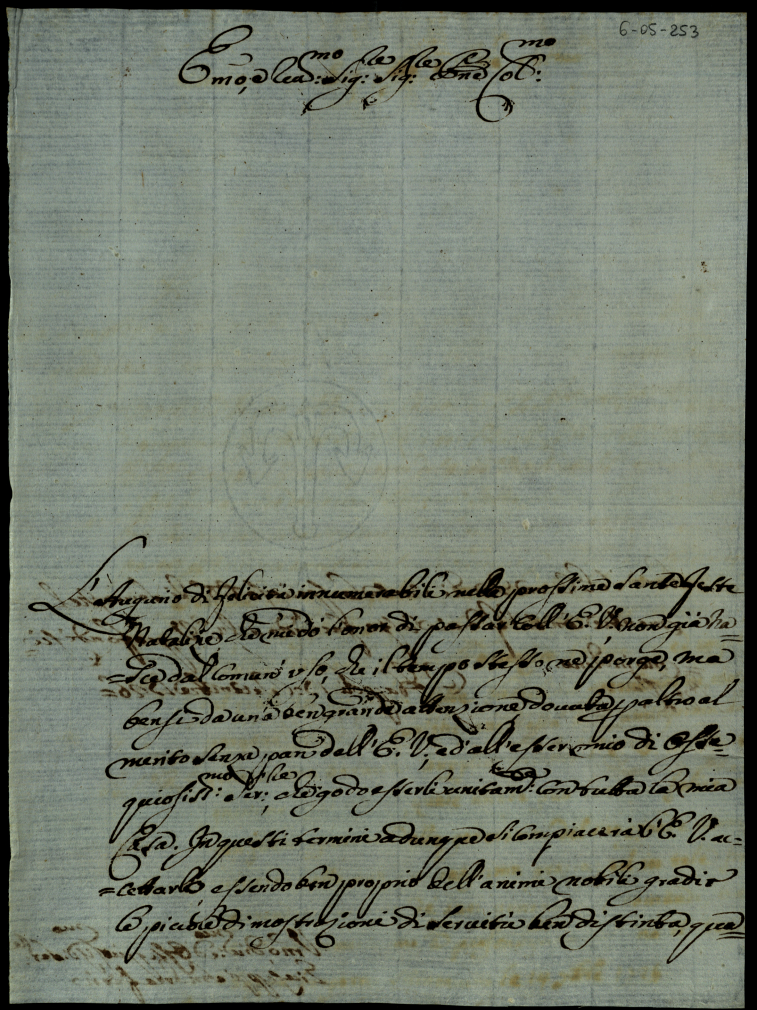 6-05-253
Em̃o, e Rev:mo Sig:re Sig:re P̃ne Col:mo
L'Augurio di felicità innumerabili nelle prossime sante Feste
Natalizie che mi dò l'onor di passar coll'E. V. non già na=
=sce dal comun' uso, che il tempo stesso ne porge, ma
bensi da una ben grande attenzione dovuta p altro al
merito senza pari dell'E. V., ed all'esser mio di Osse=
quiosiss:mo Ser:, che godo esserle unitam:te con tutta la mia
Casa. In questi termini adunque si compiacerà l'E. V. ac=
=cettarlo essendo ben proprio dell'animi nobili gradir
le piciole dimostrazioni di servitù ben distinta, qua=